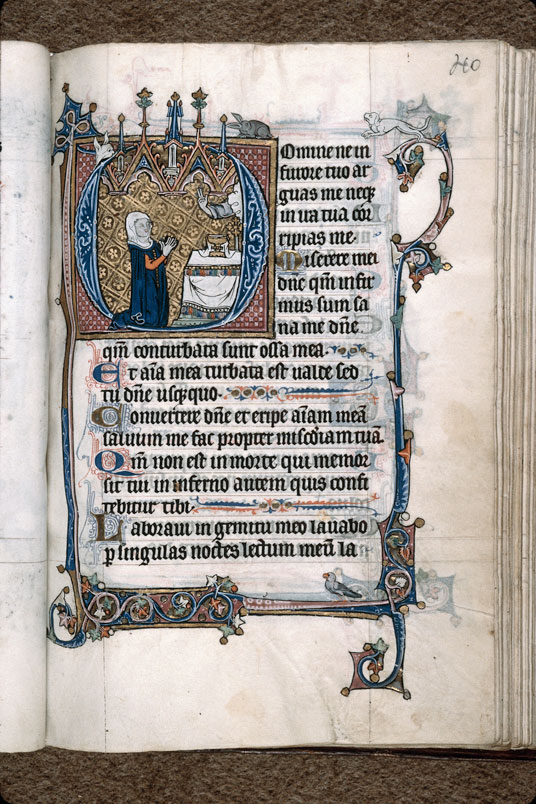 240
Domine ne in
furore tuo ar
guas me neqꝫ
in ira tua cor
ripias me.
Miserere mei
dñe qm̃ infir
mus sum sa
na me dñe
qm̃ conturbata sunt ossa mea.
Et aĩa mea turbata est ualde sed
tu dñe usqꝫquo.
Conuertere dñe et eripe aĩam meã
saluum me fac propter mĩscdiam tuã.
Qm̃ non est in morte qui memor
sit tui in inferno autem quis confi
tebitur tibi.
Laboraui in gemitu meo lauabo
ꝑ singulas noctes lectum meũ la